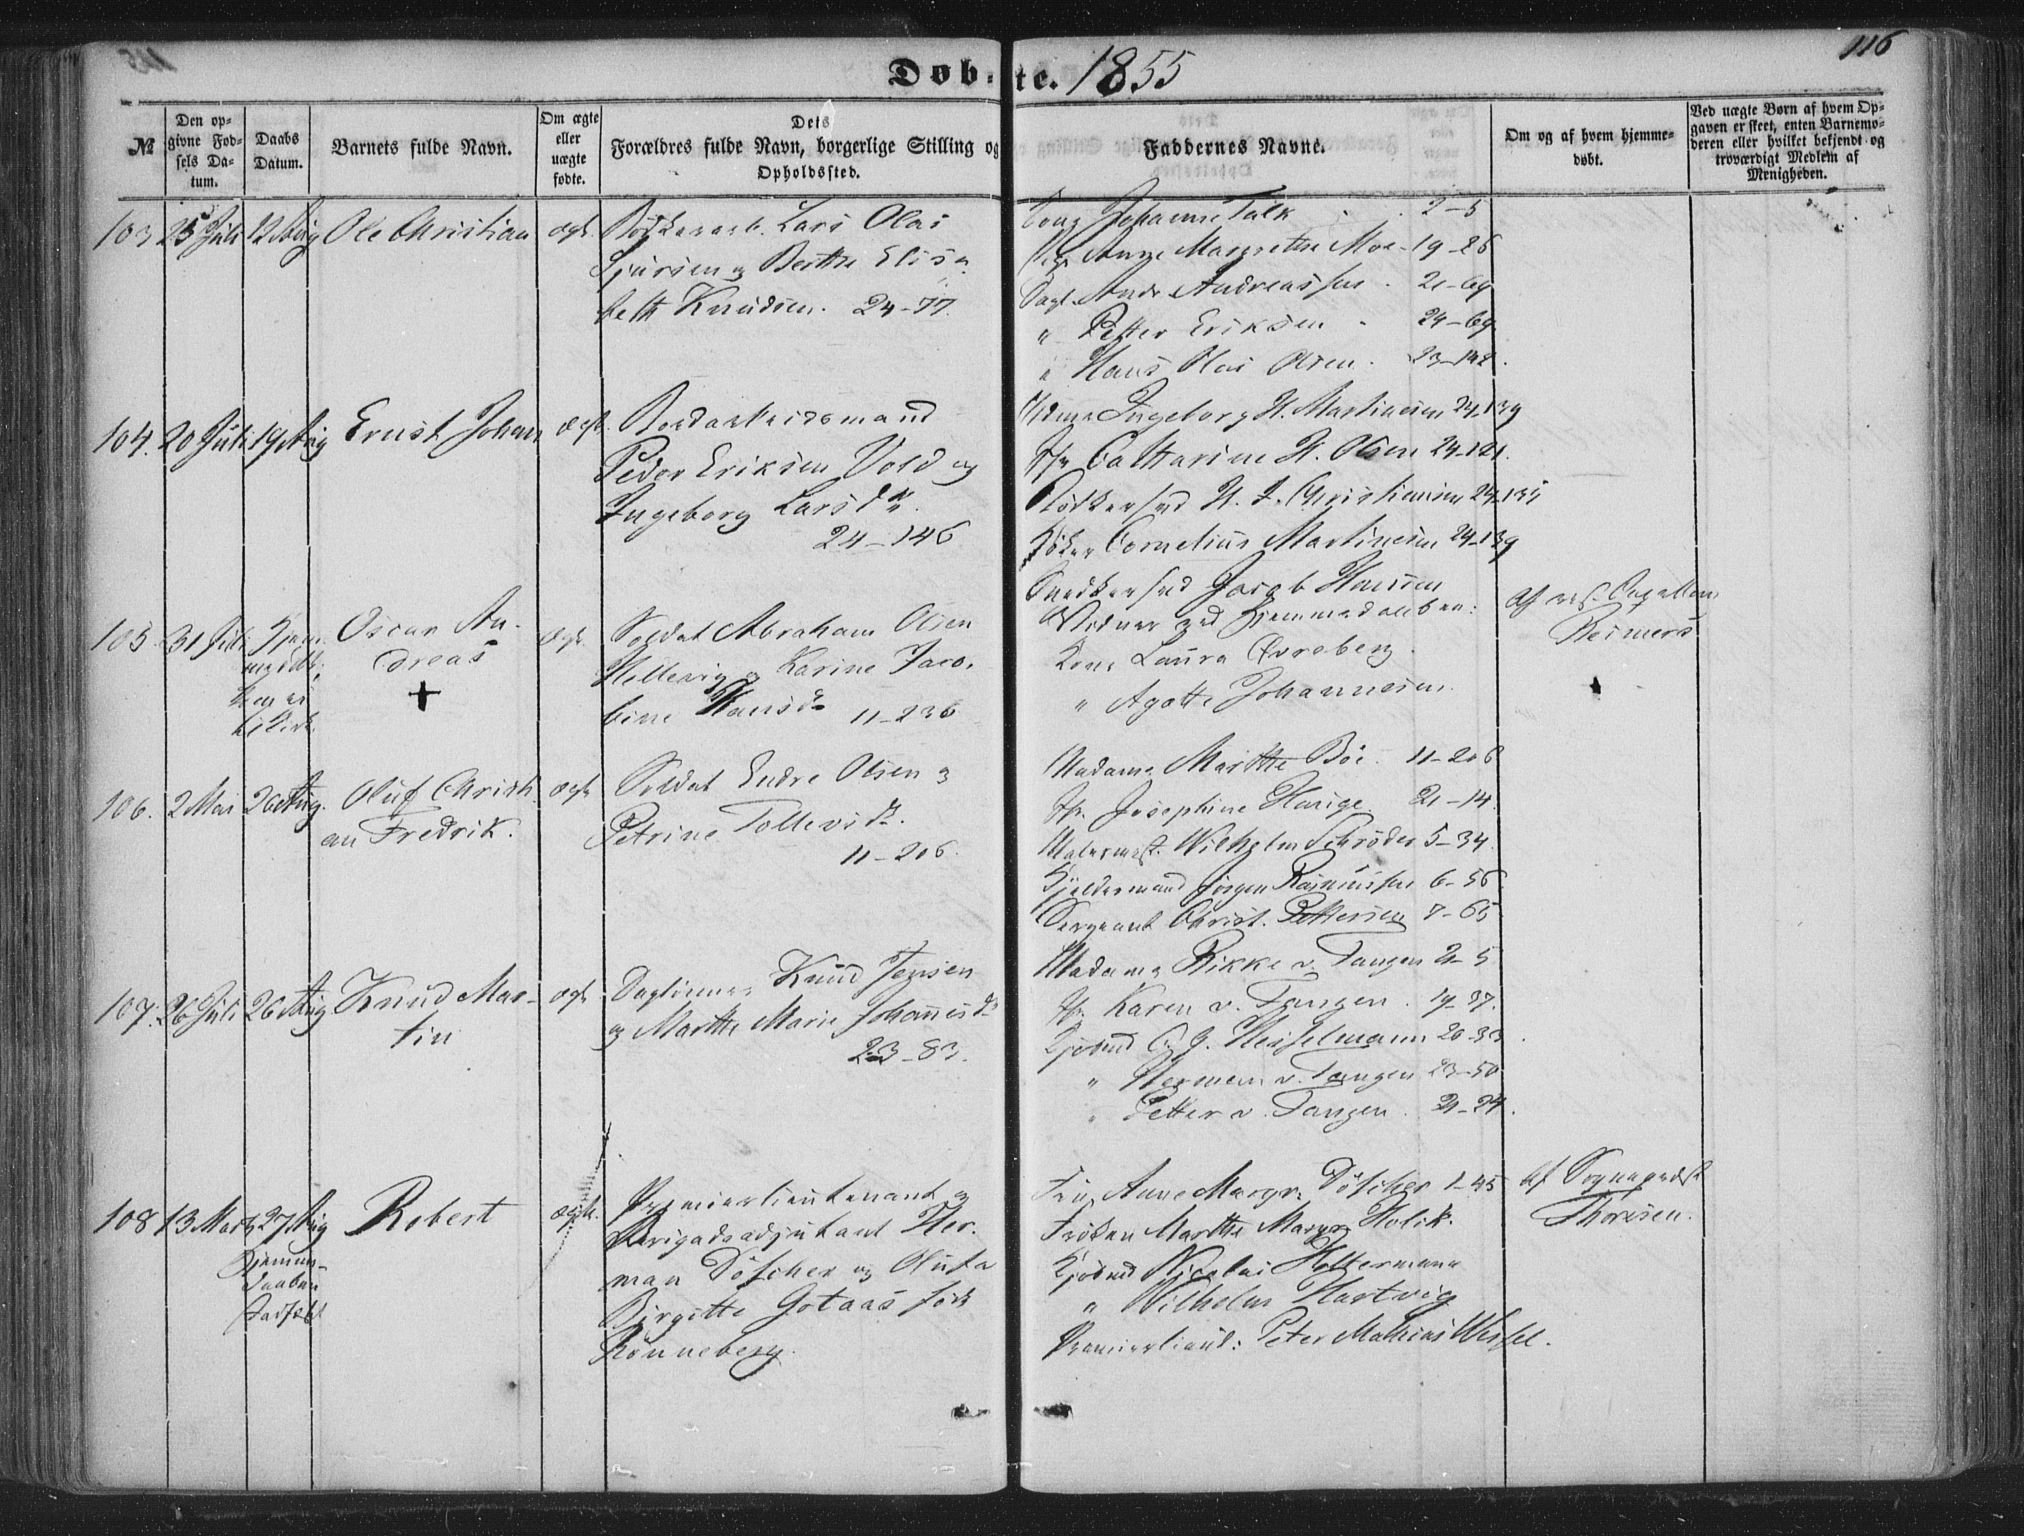 116
Døbte. 1855
№
Den opgivne Fødsels Datum.
Daabs Datum.
Barnets fulde Navn.
Om ægte eller uægte fødte.
Dets Forældres fulde Navn, borgerlige Stilling og Opholdssted.
Faddernes Navne.
Om og af hvem hjemmedøbt.
Ved uægte Børn af hvem Opgaven er skeet, enten Barnemoderen eller hvilket bekjendt og troværdigt Medlem af Menigheden.
103 25 Juli 12 Aug Ole Christian ægt.
Bødkerarb. Lars Olai
Sjursen og Berthe Elisa
beth Knudsen. 24-77.
Kone Johanne Falk 2-5
Anne Margrethe Moe 19-26
Dagl. Andr. Andreassen 21-69
" Petter Eriksen 24-69
" Hans Olai Olsen 23-142.
104. 20 Juli 19 Aug Ernst Johan ægt.
Bordarbeidsmand
Peder Eriksen Vold og
Ingeborg Larsdtr.
24-146
Madme Ingeborg H. Martinesen 24-139
Jfr Catharine H. Olsen 24-121.
Bødkersvd H. J. Christiansen 24-135
Cornelius Martinesen 24-139
Snedkersvd Jacob Hansen
105. 31 Juli Hjem
Oscar An-
dreas
+
ægt.
Soldat Abraham Olsen
Hellevig og Karine Jaco-
bine Hansdr 11-236
Vidner ved Hjemmedaaben:
Kone Laura Øvreberg.
" Agathe Johannesen.
af res. Capellan
Reimers
106. 2 Mai 26 Aug. Oluf Christi-
an Fredrik.
ægt.
Soldat Endre Olsen og
Petrine Tollevsdtr.
11-206.
Madame Marthe Böe. 11-206
Jfr. Josephine Harige 21-14.
Malermest. Wilhelm Schrøder 5-34.
Kjeldermand Jørgen Rasmussen 6-56
Sergeant Christ. Pettersen 7-65
107. 26 Juli 26 Aug Knud Mar-
tin
ægt.
Daglønner Knud Jensen
og Marthe Marie Johannesdr
23-83.
Madame Rikke v. Tangen 21-5
Jfr. Karen v. Tangen. 19-37.
Kjøbmd C. J. Hesselmann 20-33.
" Herman v. Tangen 23-50
" Petter v. Tangen. 21-24.
108 13 Marts 27 Aug Robert ægt.
Hjemme-
daaben
stadfæst
Premierlieutenant og
Brigadeadjutant Her-
man Döscher og Olufa
Birgitte Gotaas født
Rønneberg.
Fru Anne Margr. Döscher 1-45
Frøken Marthe Margr. Holck.
Kjøbmd Nicolai Holtermann
" Wilhelm Hartvig
Premierlieut: Peter Mathias Wessel.
af Sognepræst
Thoresen.